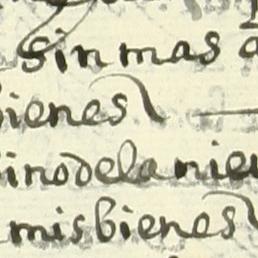 sin mas a
bienes
inodela niev
mis bienes